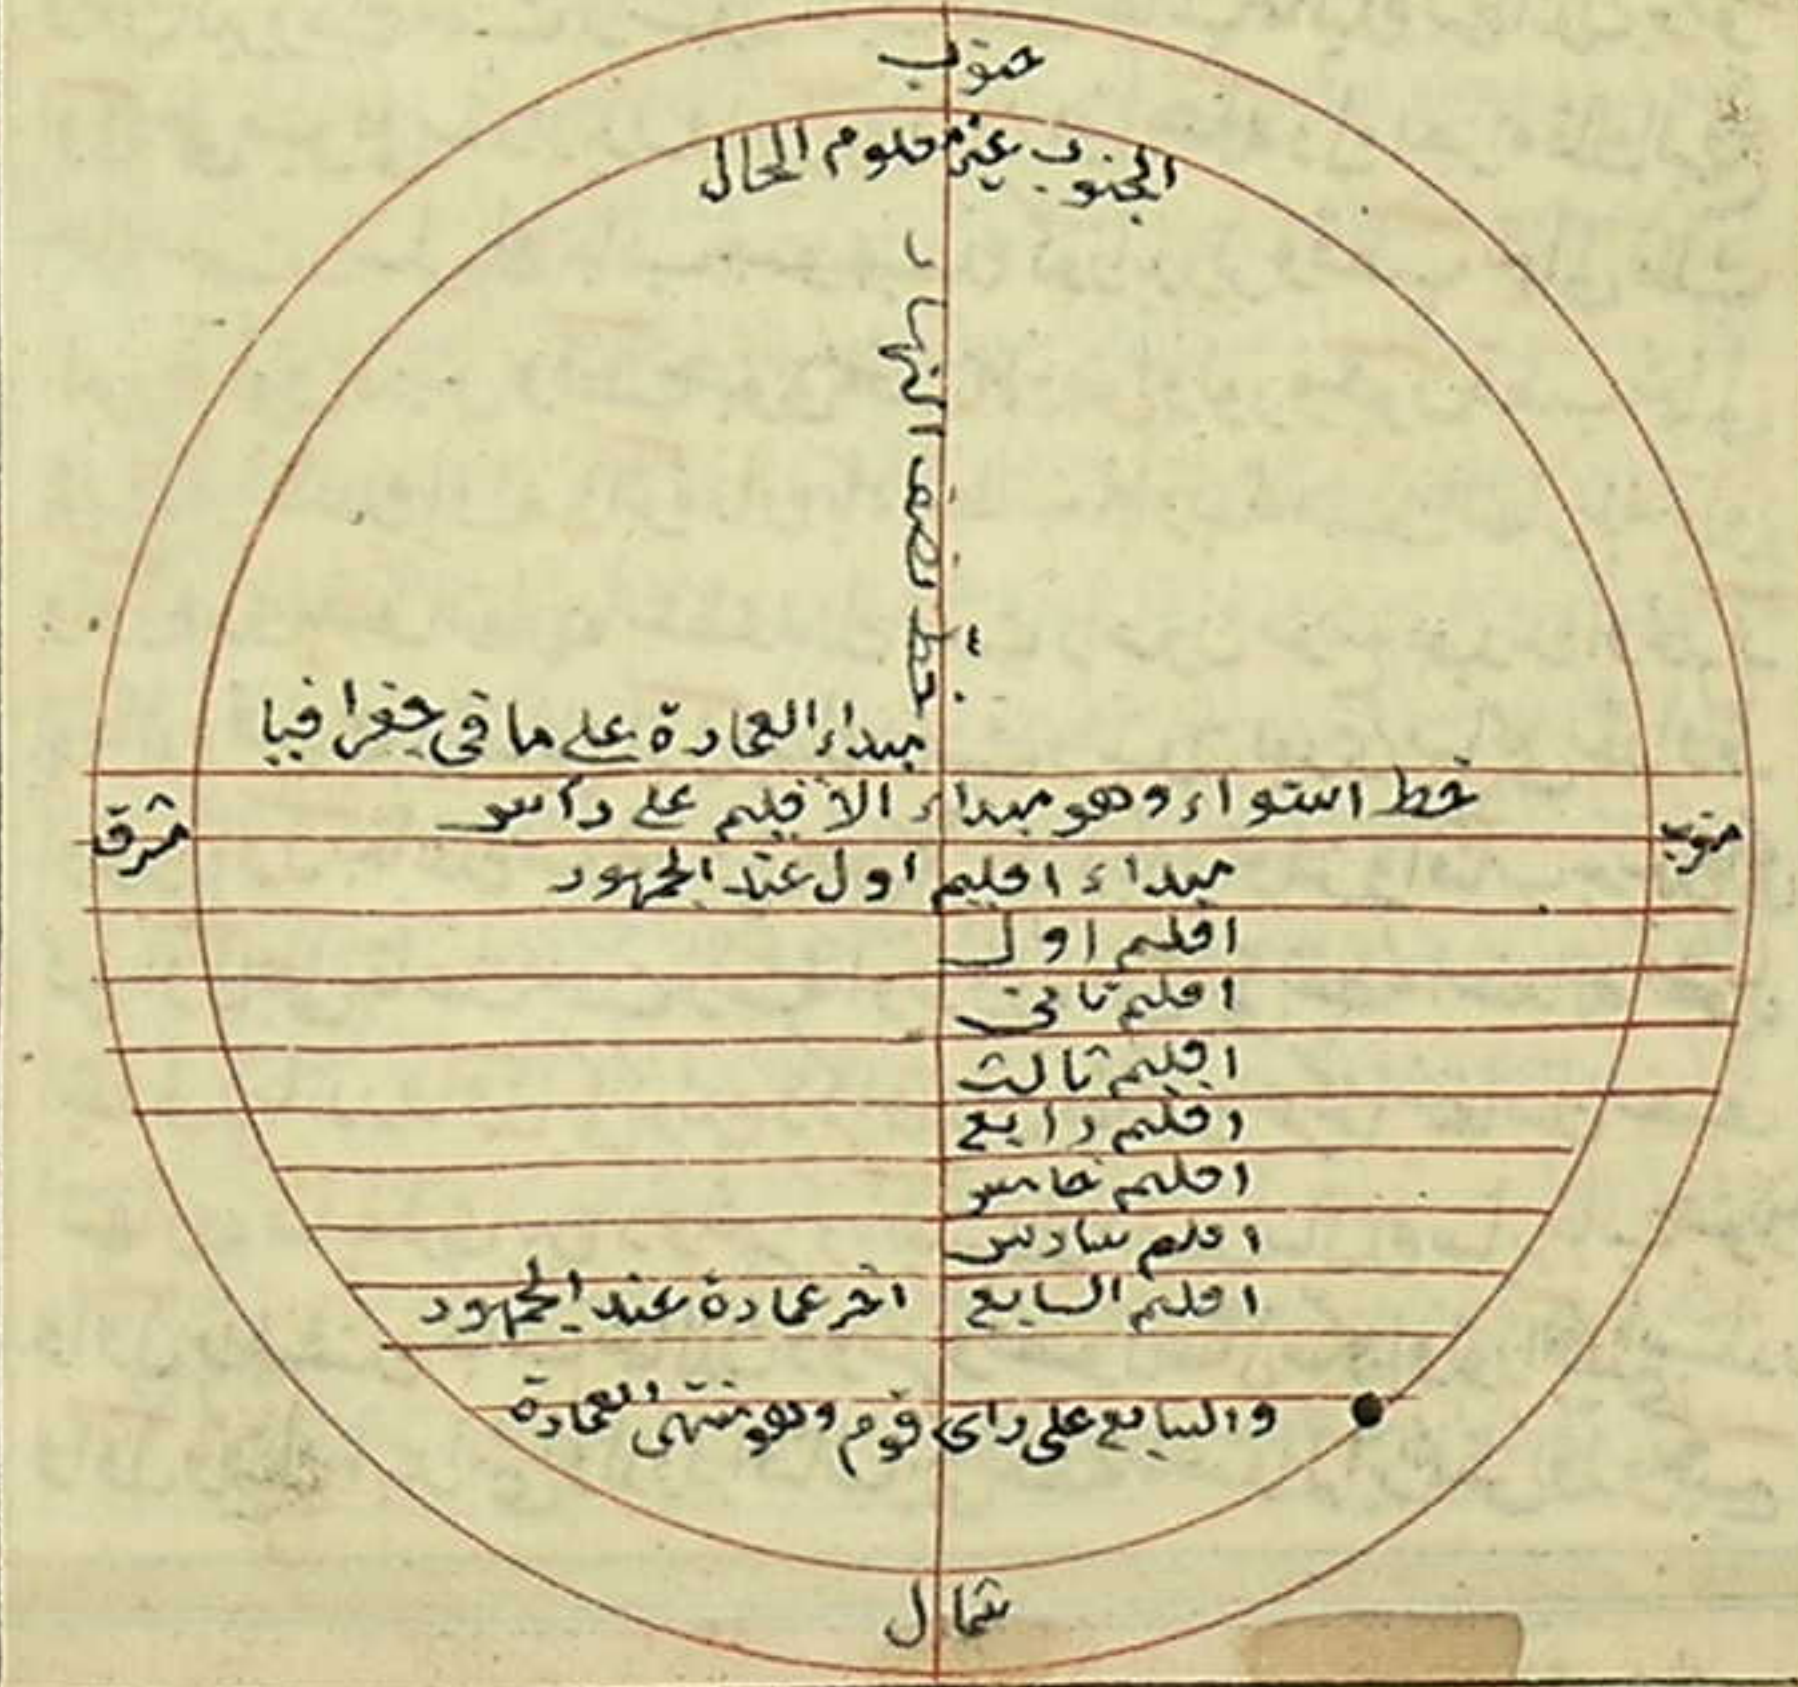 جنوب
الجنوب غير معلوم الحال
خط نصف النهار
مبداء العمارة على ما في جغرافيا
خط استواء وهو مبداء الاقليم على رأس
مغرب
شرق
مبداء اقليم اول عند الجمهور
اقليم اول
اقليم ثاني
اقليم ثالث
اقليم رابع
اقليم خامس
اقليم سادس
اقليم السابع
اخر عمارة عند الجمهور
والسابع على راى قوم وهو منتهى العمارة
شمال